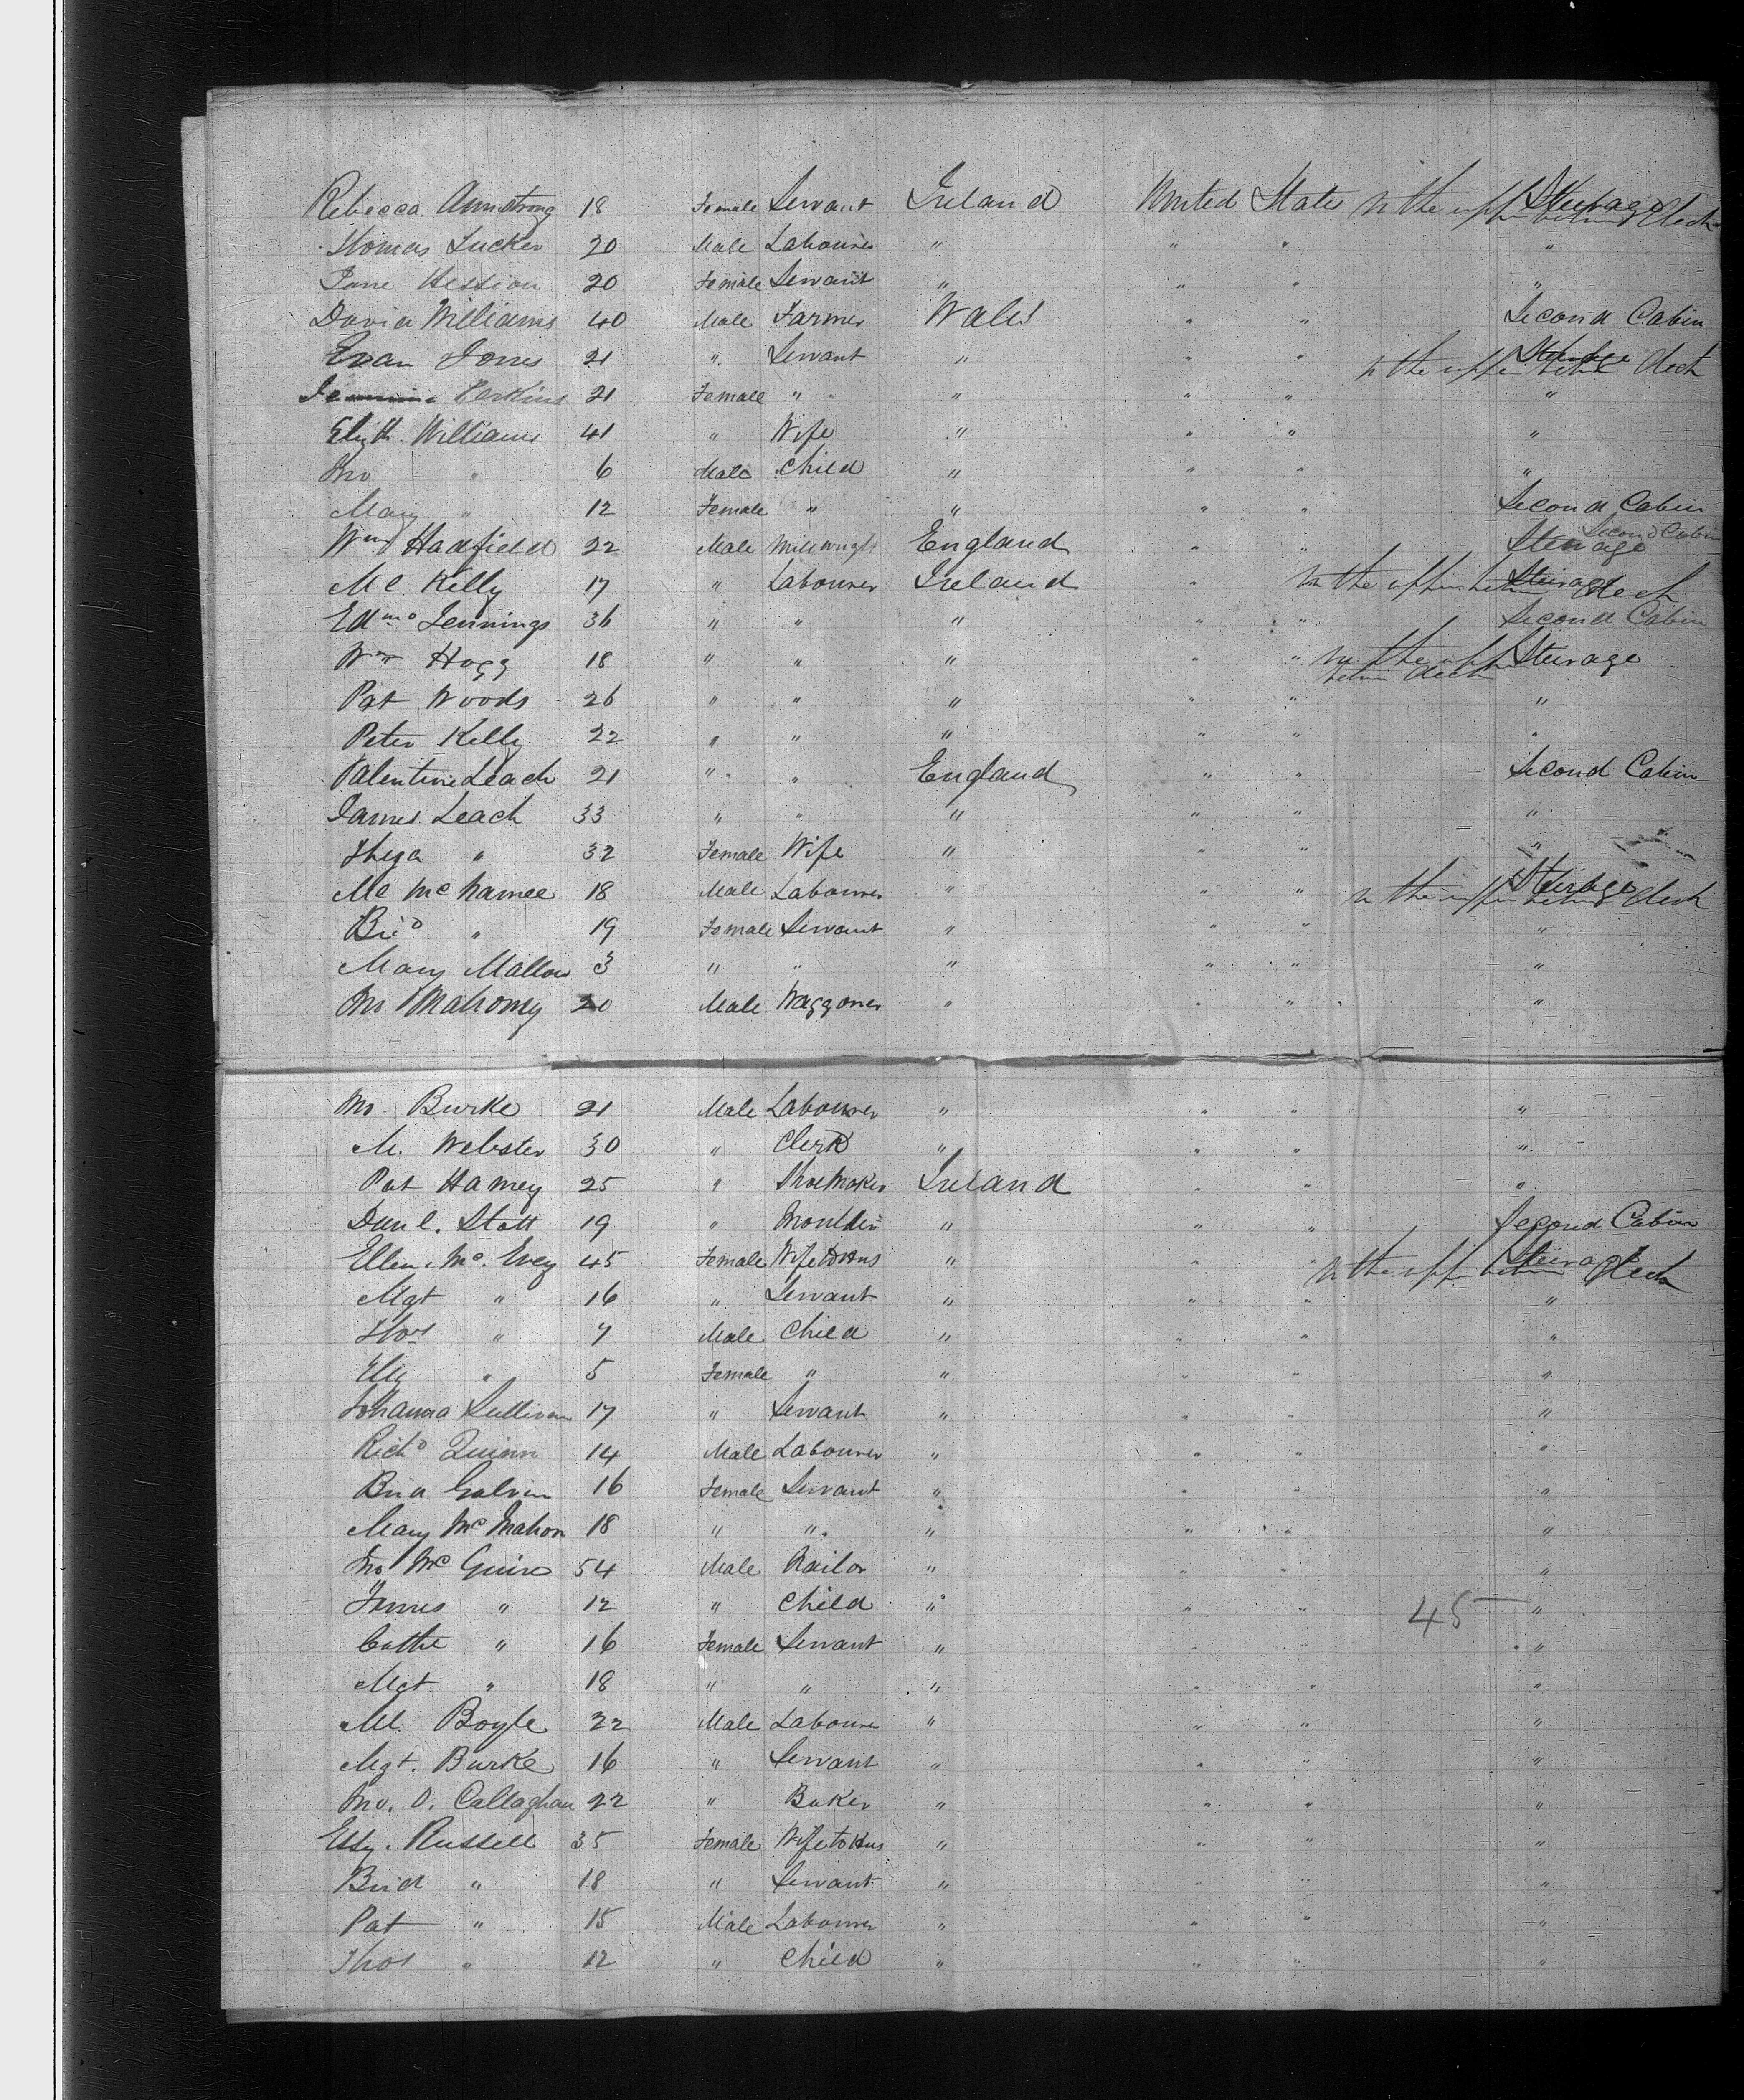 Rebecca Armstrong 18 Female Servant Ireland United State In the upper between deck Steerage
Thomas Tucker 20 Male Labourer " " " "
Jane Hession 20 Female Servant " " " "
David Williams 40 Male Farmer Wales " " Second Cabin
Evan Jones 21 " Servant " " " In the upper between deck Steerage
Perkins 21 Female " " " " "
Elizth. Williams 41 " Wife " " " "
Jno " 6 Male Child " " " "
Mary " 12 Female " " " " Second Cabin
Wm Hadfield 22 Male Millwright England " " Steerage Second Cabin
Ml Kelly 17 " Labourer Ireland " In the upper between deck Steerage
Edmd Jennings 36 " " " " " Second Cabin
Wm Hogg 18 " " " " " In the upper between deck Steerage
Pat Woods 26 " " " " " "
Peter Kelly 22 " " " " " "
Valentine Leach 21 " " England " " Second Cabin
James Leach 33 " " " " " "
" 32 Female Wife " " " "
Ml McNamee 18 Male Labourer " " " In the upper between deck Steerage
Brid " 19 Female Servant " " " "
Mary Mallow 3 " " " " " "
Jno Mahoney 20 Male Waggoner " " " "
Jno. Burke 21 Male Labourer " " " "
M. Webster 30 " Clerk " " " "
Pat Harney 25 " Shoemaker Ireland " " "
Danl. Stott 19 " Moulder " " " Second Cabin
Ellen. Mc. Evey 45 Female Wife to Hus " " " In the upper between deck Steerage
Mgt " 16 " Servant " " " "
Thos " 7 Male Child " " " "
Eliz " 5 Female " " " " "
Johanna Sullivan 17 " Servant " " " "
Richd Quinn 14 Male Labourer " " " "
Brid Galvin 16 Female Servant " " " "
Mary McMahon 18 " " " " " "
Jno McGuire 54 Male " " " "
James " 12 " Child " " " 45 "
Cathe " 16 Female Servant " " " "
Mgt " 18 " " " " " "
Ml. Boyle 22 Male Labourer " " " "
Mgt. Burke 16 " Servant " " " "
Jno. O. Callaghan 22 " Baker " " " "
Essy. Russell 35 Female Wife to Hus " " " "
Brid " 18 " Servant " " " "
Pat " 15 Male Labourer " " " "
Thos " 12 " Child " " " "